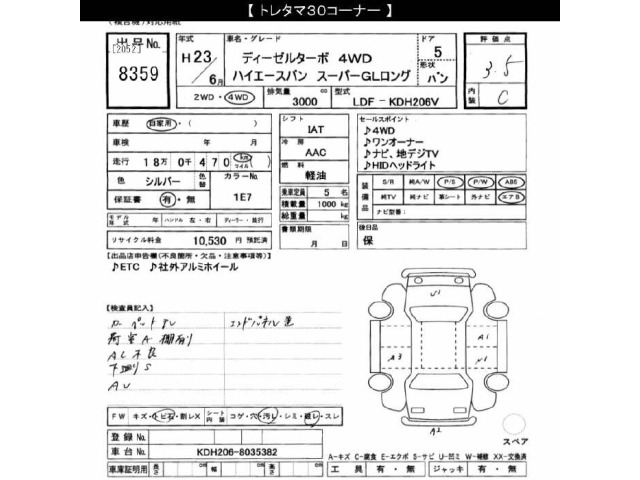 【 トレタマ30コーナー 】
(複合機)対応用紙
出品No. [2052] 8359
年式 H23/6月
車名・グレード ディーゼルターボ 4WD
ハイエースバン スーパーGLロング
ドア 5
形状 バン
評価点 3.5
内装 C
2WD・4WD 排気量 3000 cc 型式 LDF - KDH206V
車歴 自家用・( )
車検 年 月
走行 18万0千470 km マイル
色 シルバー 色替 カラーNo. 1E7
保証書 有・無
シフト IAT
冷房 AAC
燃料 軽油
乗車定員 5 名
積載量 1000 kg
総重量 kg
セールスポイント
♪4WD
♪ワンオーナー
♪ナビ、地デジTV
♪HIDヘッドライト
装備品 S/R 純A/W P/S P/W ABS
純TV 純ナビ 革シート 外ナビ エアB
ナビ型番:
モデル年式 年 ハンドル 左・右 ディーラー・並行
リサイクル料金 10,530 円 預託済
書類期限 月 日
後日品 保
[出品店申告欄(不良箇所・欠品・注意事項等)]
♪ETC ♪社外アルミホイール
[検査員記入]
荷室A 棚有り
AC不良
下廻りS
AU
U1
A1
A3
U1
A2
FW キズ・トビ石・割レX シート内張 コゲ・穴・汚レ・シミ・破レ・スレ
登録No.
車台No. KDH206-8035382
スペア
A-キズ C-腐食 E-エクボ S-サビ U-凹ミ W-補修 XX-交換済
車庫証明用 長さ cm 幅 cm 高さ cm 工具 有・無 ジャッキ 有・無